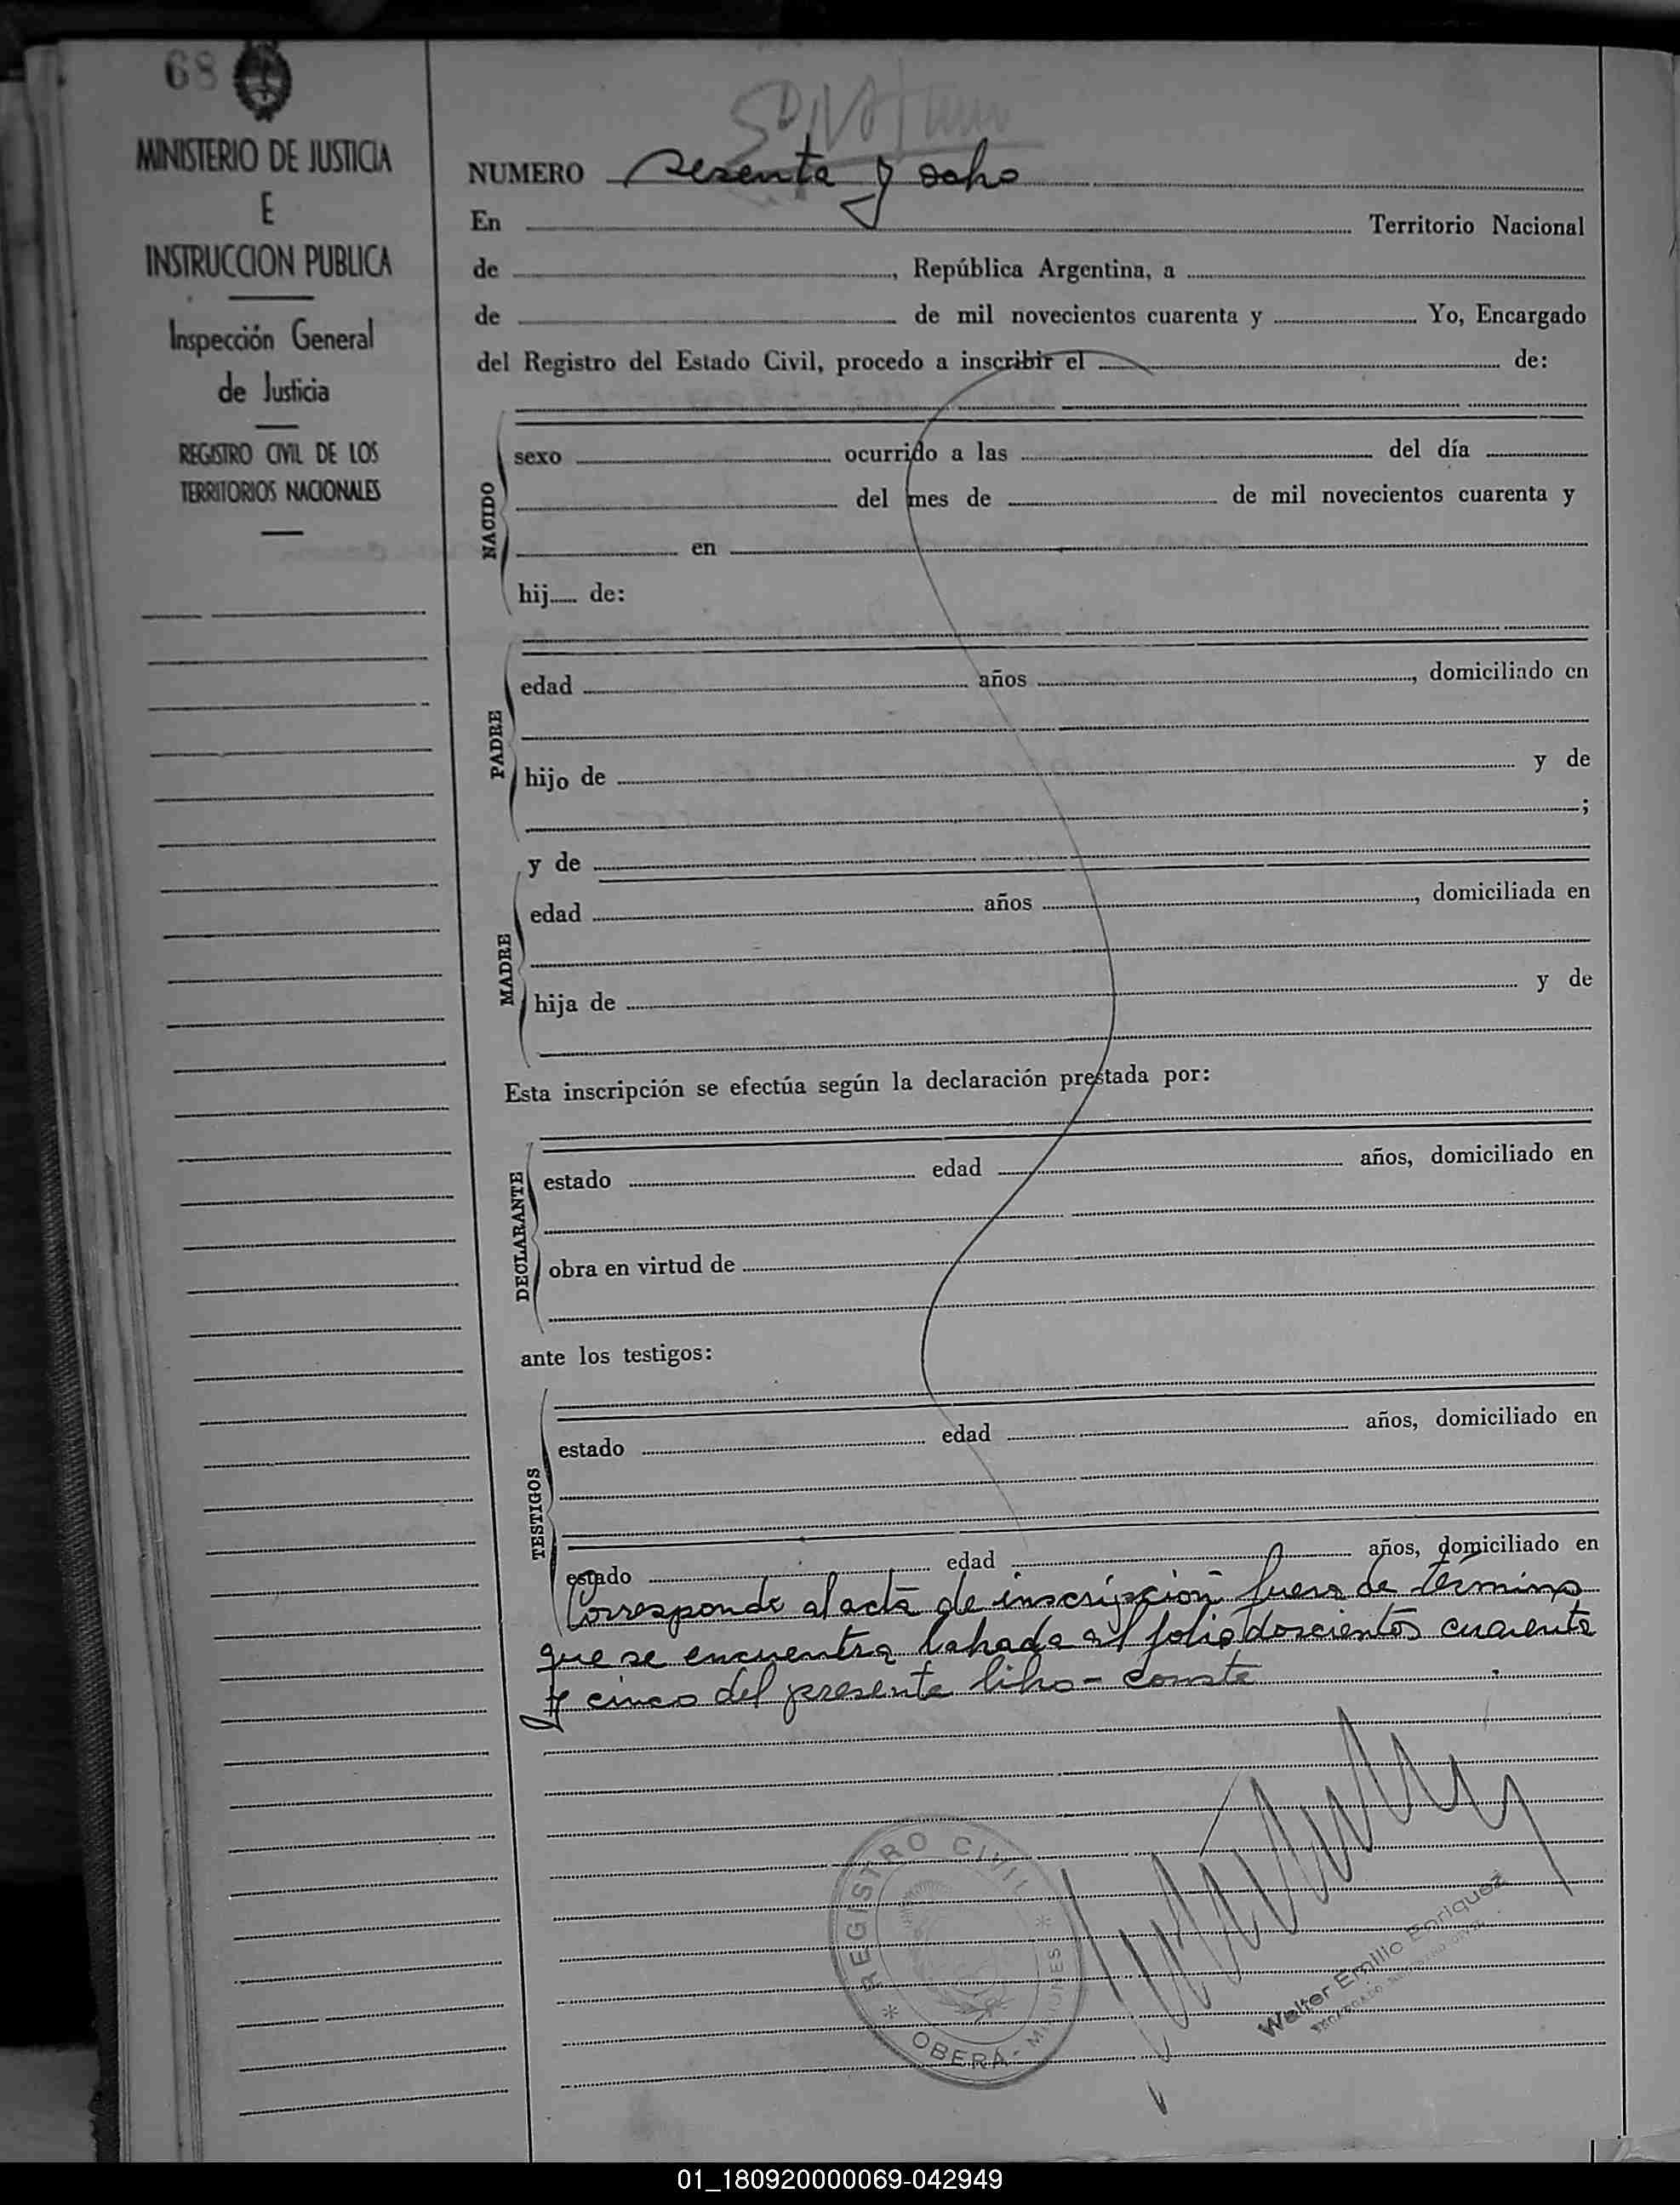 68
MINISTERIO DE JUSTICIA
E
INSTRUCCION PUBLICA
Inspección General
de Justicia
REGISTRO CIVIL DE LOS
TERRITORIOS NACIONALES
NUMERO sesenta y ocho
En Territorio Nacional
de , República Argentina, a
de de mil novecientos cuarenta y Yo, Encargado
del Registro del Estado Civil, procedo a inscribir el de:
NACIDO
sexo ocurrido a las del día
del mes de de mil novecientos cuarenta y
en
hij de:
PADRE
edad años , domiciliado en
hijo de y de
;
y de
MADRE
edad años , domiciliada en
hija de y de
Esta inscripción se efectúa según la declaración prestada por:
DECLARANTE
estado edad años, domiciliado en
obra en virtud de
ante los testigos:
TESTIGOS
estado edad años, domiciliado en
estado edad años, domiciliado en
Corresponde al acta de inscripción fuera de término
que se encuentra labrada al folio doscientos cuarenta
y cinco del presente libro - conste
REGISTRO CIVIL
OBERÁ - MISIONES
Walter Emilio Enriquez
01_180920000069-042949